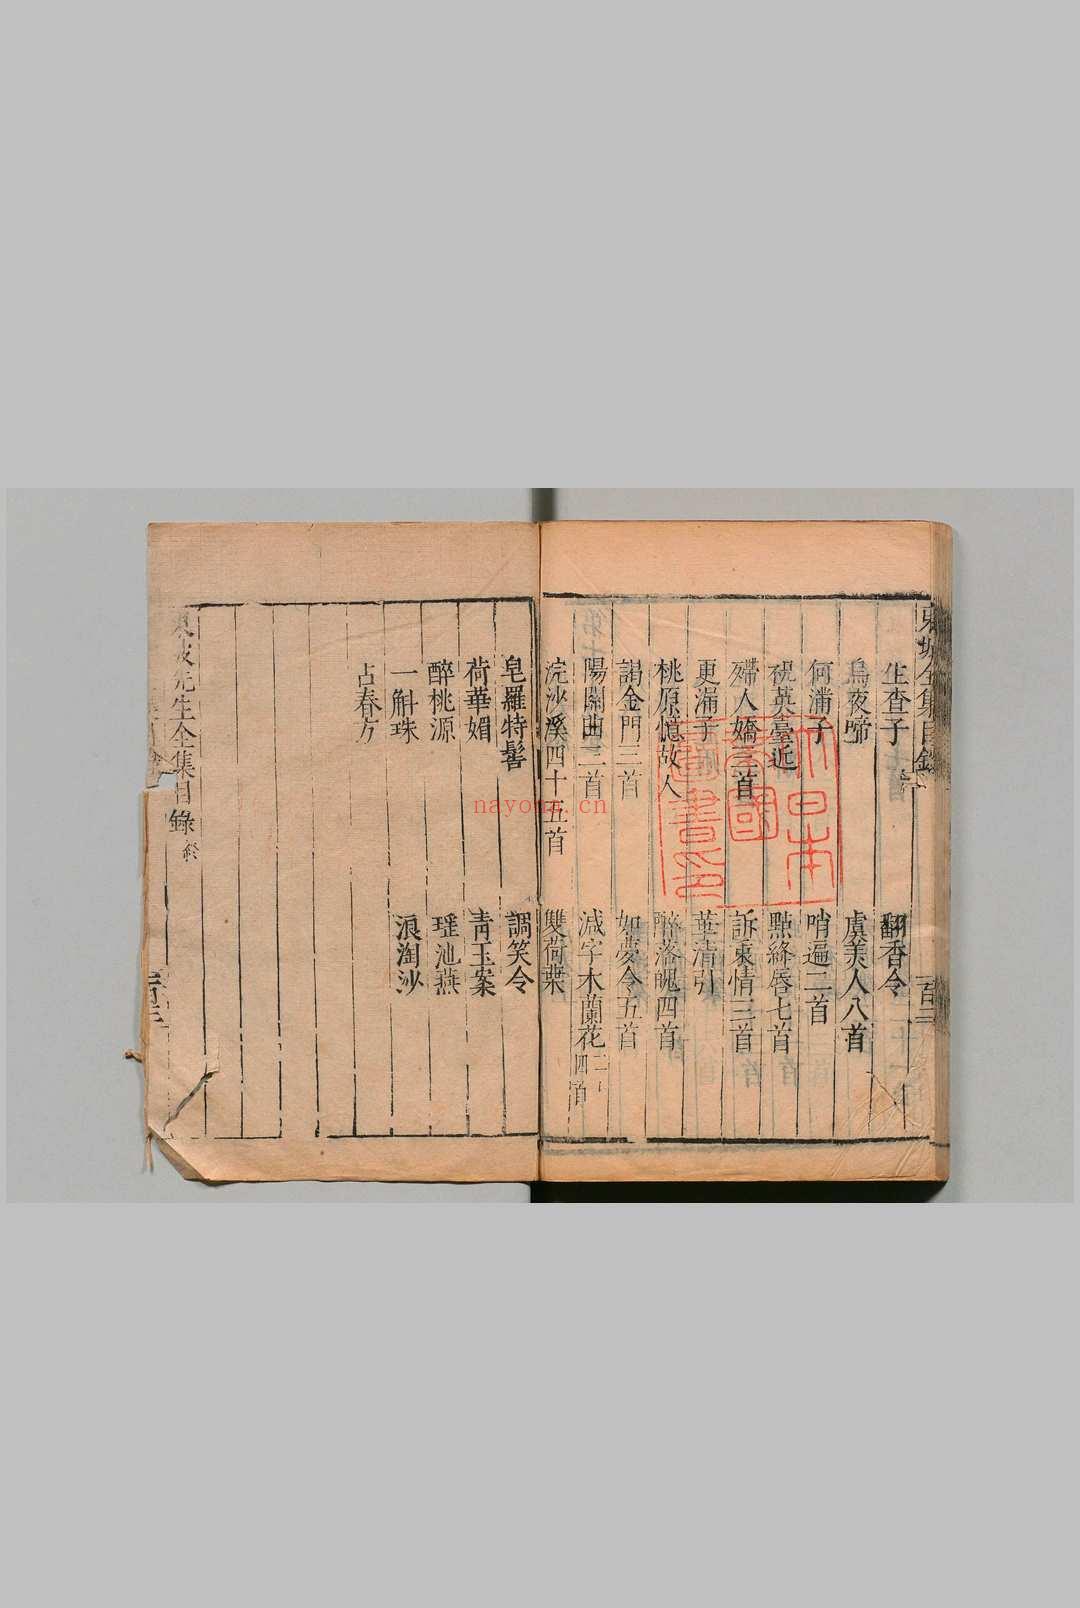 東坡全集目錄
生查子 翻香令
烏夜啼 虞美人八首
何滿子 哨遍二首
祝英臺近 點絳唇七首
殢人嬌三首 訴衷情三首
更漏子 華清引
桃原憶故人 醉落魄四首
謁金門三首 如夢令五首
陽關曲三首 減字木蘭花二十四首
浣沙溪四十五首 雙荷葉
皂羅特髻 調笑令
荷華媚 青玉案
醉桃源 瑤池燕
一斛珠 浪淘沙
占春方
東坡先生全集目錄終
大日本
帝國
圖書印
nayona.cn